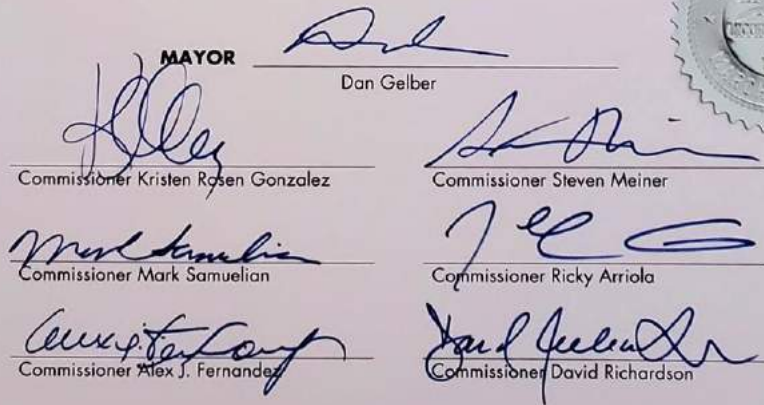 MAYOR
Dan Gelber
Commissioner Kristen Rosen Gonzalez
Commissioner Steven Meiner
Mark Samuelian
Commissioner Mark Samuelian
Commissioner Ricky Arriola
Commissioner Alex J. Fernandez
Commissioner David Richardson